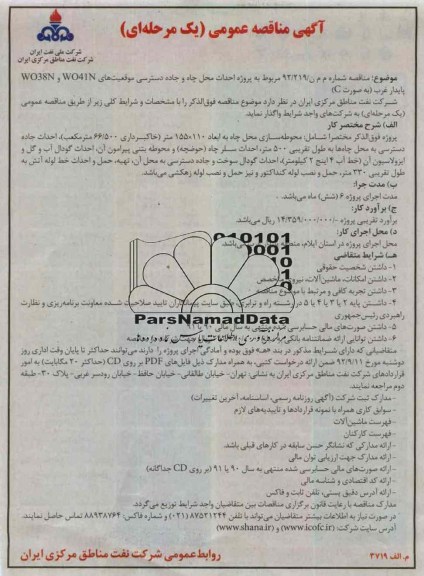 آگهی مناقصه عمومی (یک مرحله‌ای)
شرکت ملی نفت ایران
شرکت نفت مناطق مرکزی ایران
موضوع: مناقصه شماره م م ن/۹۲/۲۱۹ مربوط به پروژه احداث محل چاه و جاده دسترسی موقعیت‌های WO41N و WO38N
پایدار غرب (به صورت C)
شرکت نفت مناطق مرکزی ایران در نظر دارد موضوع مناقصه فوق‌الذکر را با مشخصات و شرایط کلی زیر از طریق مناقصه عمومی
(یک مرحله‌ای) به شرکت‌های واجد شرایط واگذار نماید.
الف) شرح مختصر کار
پروژه فوق‌الذکر مختصرا شامل: محوطه‌سازی محل چاه به ابعاد ۱۱۰×۱۵۵ متر (خاکبرداری ۶۶/۵۰۰ مترمکعب)، احداث جاده
دسترسی به محل چاه‌ها به طول تقریبی ۵۰۰ متر، احداث سلر چاه (حوضچه) و محوطه بتنی پیرامون آن، احداث گودال آب و گل و
ایزولاسیون آن (خط آب ۴ اینچ ۲ کیلومتر)، احداث گودال سوخت و جاده دسترسی به محل آن، تهیه، حمل و احداث خط لوله آتش به
طول تقریبی ۲۳۰ متر، حمل و نصب لوله کنداکتور و نیز حمل و نصب لوله زهکشی می‌باشد.
ب) مدت اجرا:
مدت اجرای پروژه ۶ (شش) ماه می‌باشد.
ج) برآورد کار:
برآورد تقریبی پروژه ۱۴/۳۵۹/۰۰۰/۰۰۰ ریال می‌باشد.
د) محل اجرای کار:
محل اجرای پروژه در استان ایلام، می‌باشد.
هـ) شرایط متقاضی
۱- داشتن شخصیت حقوقی
۲- داشتن امکانات، ماشین‌آلات، نیروی متخصص
۳- داشتن تجربه کافی و مرتبط با موضوع مناقصه
۴- داشتن پایه ۲ یا ۳ یا ۴ یا ۵ در رشته راه و ترابری طبق سایت پیمانکاران تایید صلاحیت شده معاونت برنامه‌ریزی و نظارت
راهبردی رئیس‌جمهوری
ParsNamadData
۵- داشتن صورت‌های مالی حسابرسی شده منتهی به سال مالی ۹۰ یا ۹۱
۶- داشتن توانایی ارائه ضمانتنامه بانکی
متقاضیانی که دارای شرایط مذکور در بند هـ فوق بوده و آمادگی اجرای پروژه را دارند می‌توانند حداکثر تا پایان وقت اداری روز
دوشنبه مورخ ۹۲/۹/۱۱ ضمن ارائه درخواست کتبی، به همراه مدارک ذیل فایل‌های PDF بر روی CD (حداکثر ۲۰ مگابایت) به امور
قراردادهای شرکت نفت مناطق مرکزی ایران به نشانی: تهران- خیابان طالقانی- خیابان حافظ- خیابان رودسر غربی- پلاک ۳۰- طبقه
دوم مراجعه نمایند.
- مدارک ثبت شرکت (آگهی روزنامه رسمی، اساسنامه، آخرین تغییرات)
- سوابق کاری همراه با نمونه قراردادها و تاییدیه‌های لازم
- فهرست ماشین‌آلات
- فهرست کارکنان
- ارائه مدارکی که نشانگر حسن سابقه در کارهای قبلی باشد.
- ارائه مدارک جهت ارزیابی توان مالی
- ارائه صورت‌های مالی حسابرسی شده منتهی به سال ۹۰ یا ۹۱ (بر روی CD جداگانه)
- ارائه کد اقتصادی و شناسه ملی
- ارائه آدرس دقیق پستی، تلفن ثابت و فاکس
مدارک مناقصه با رعایت قانون برگزاری مناقصات بین متقاضیان واجد شرایط توزیع می‌گردد.
در صورت نیاز به اطلاعات بیشتر متقاضیان می‌توانند با تلفن ۸۷۵۲۱۲۴۴ (۰۲۱) و شماره فاکس: ۸۸۹۳۸۷۶۴ تماس حاصل نمایند.
آدرس سایت شرکت: (www.icofc.ir) و (www.shana.ir)
روابط عمومی شرکت نفت مناطق مرکزی ایران
م. الف ۳۷۱۹